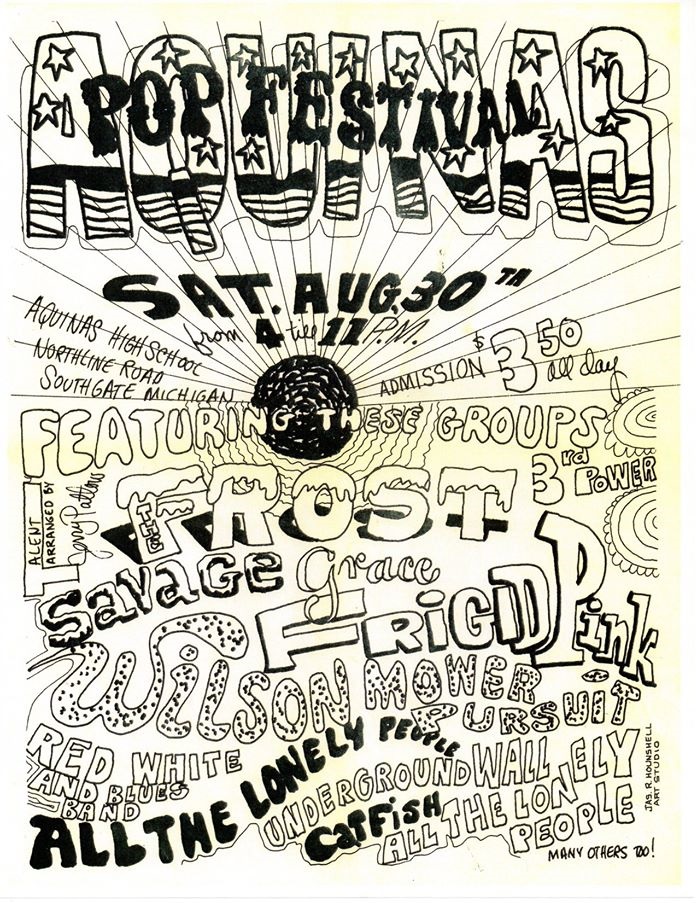 AQUINAS
POP FESTIVAL
SAT. AUG. 30TH
from 4 till 11 P.M.
AQUINAS HIGH SCHOOL
NORTHLINE ROAD
SOUTHGATE MICHIGAN
ADMISSION $3.50 all day
FEATURING THESE GROUPS
3rd POWER
THE FROST
TALENT
ARRANGED BY
Savage Grace
FRIGID Pink
WILSON MOWER
PURSUIT
RED WHITE
AND BLUES
BAND
ALL THE LONELY PEOPLE
UNDERGROUND WALL
CATFISH
ALL THE LONELY
PEOPLE
MANY OTHERS TOO!
JAS. R. HOUNSHELL
ART STUDIO